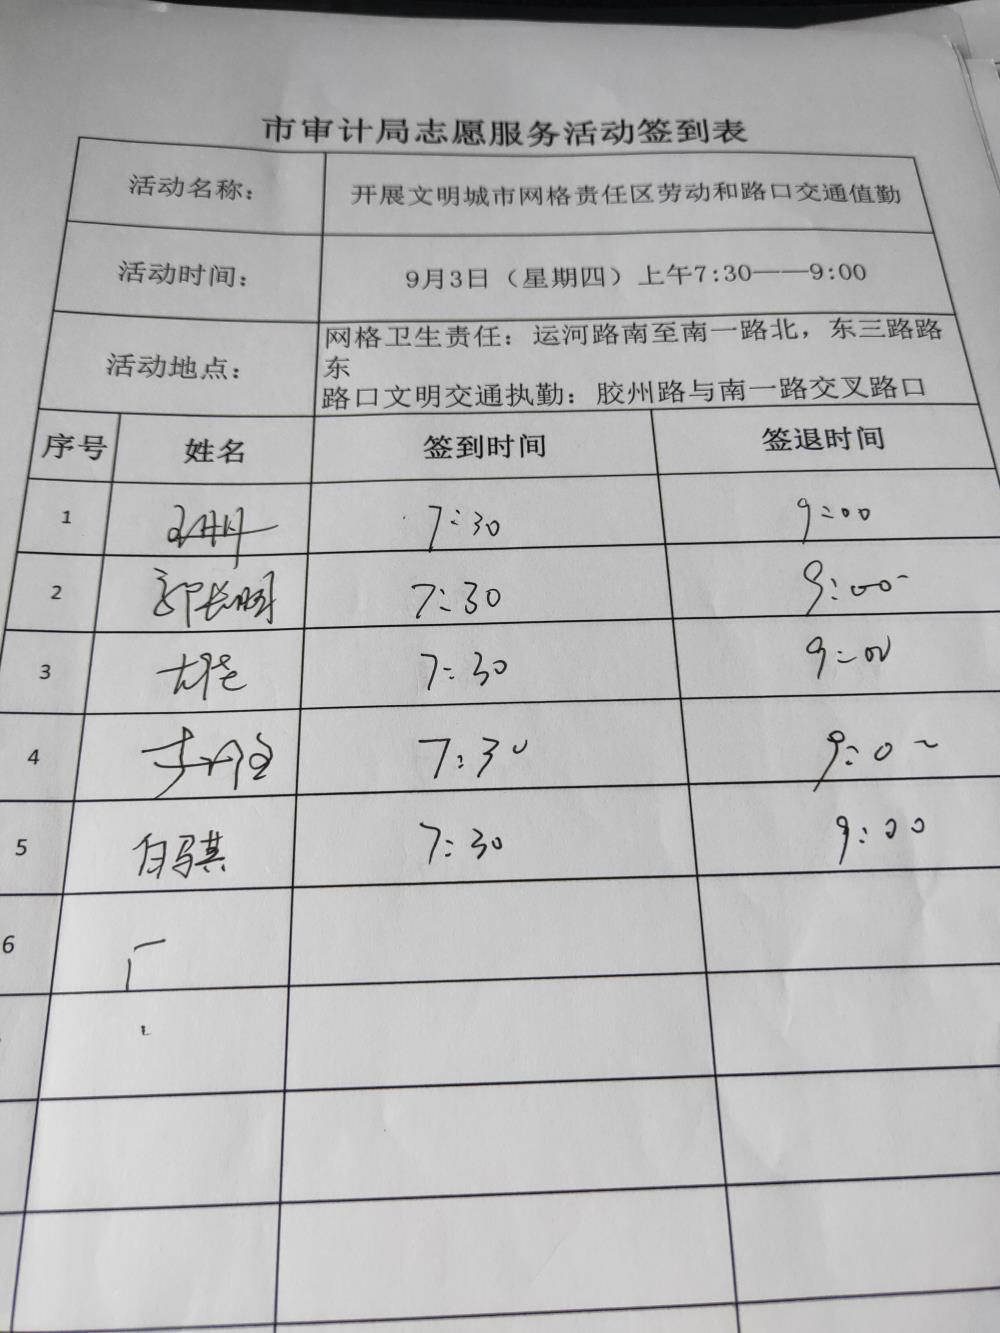 市审计局志愿服务活动签到表
活动名称： 开展文明城市网格责任区劳动和路口交通值勤
活动时间： 9月3日（星期四）上午7:30——9:00
活动地点： 网格卫生责任：运河路南至南一路北，东三路路
东
路口文明交通执勤：胶州路与南一路交叉路口
序号 姓名 签到时间 签退时间
1 7:30 9:00
2 7:30 9:00
3 7:30 9:00
4 7:30 9:00
5 白骐 7:30 9:00
6